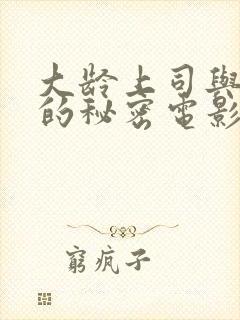 大龄上司與
的秘密電影
窮疯子